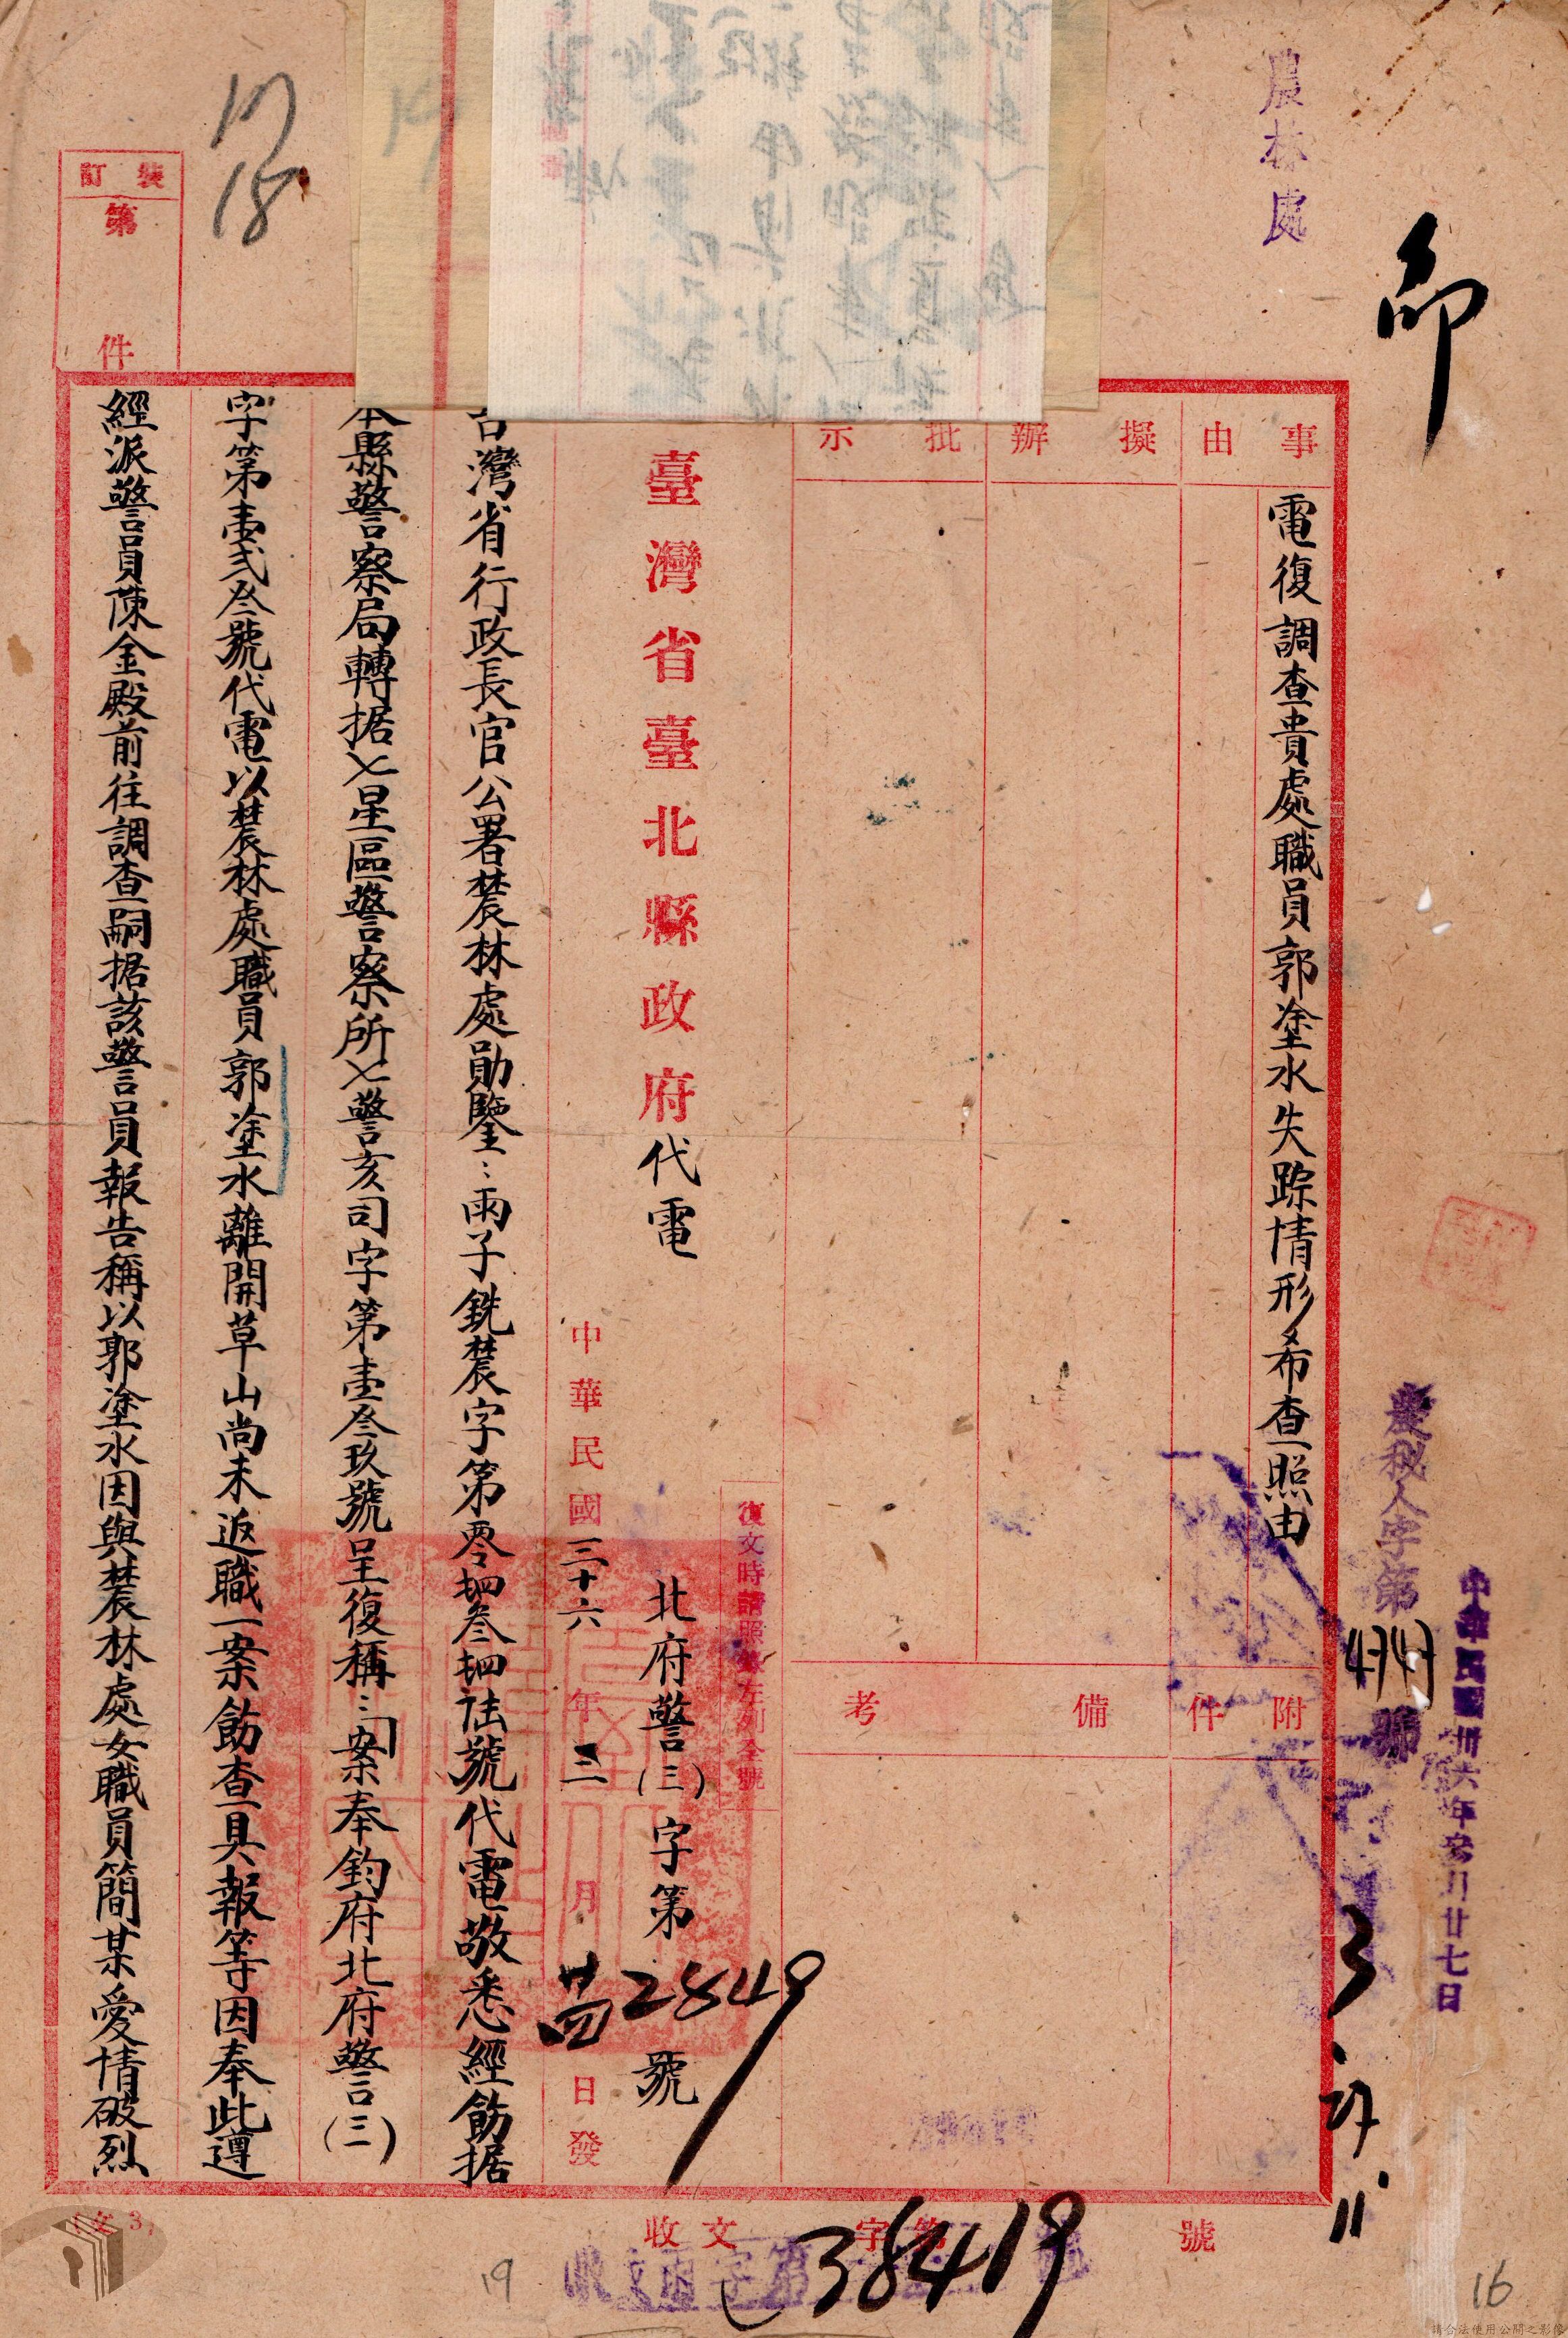 農林處
事由
電復調查貴處職員郭塗水失踪情形希查照由
擬辦
批示
附件
備考
臺灣省臺北縣政府代電
復文時請照錄左列全號
北府警(三)字第2849號
中華民國三十六年三月廿四日發
台灣省行政長官公署農林處勛鑒:丙子銑農字第零肆叁肆陆號代電敬悉經飭据
本縣警察局轉据七星區警察所七警亥司字第壹叁玖號呈復稱:「案奉鈞府北府警(三)
字第壹弍叁號代電以農林處職員郭塗水離開草山尚未返職一案飭查具報等因奉此遵
經派警員陳金殿前往調查嗣据該警員報告稱以郭塗水因與農林處女職員簡某愛情破烈
裝訂
第
件
17
18
農秘人字第4747號
中華民國卅六年叁月廿七日
收文
字第
38419
號
19
16
請合法使用公開之影像